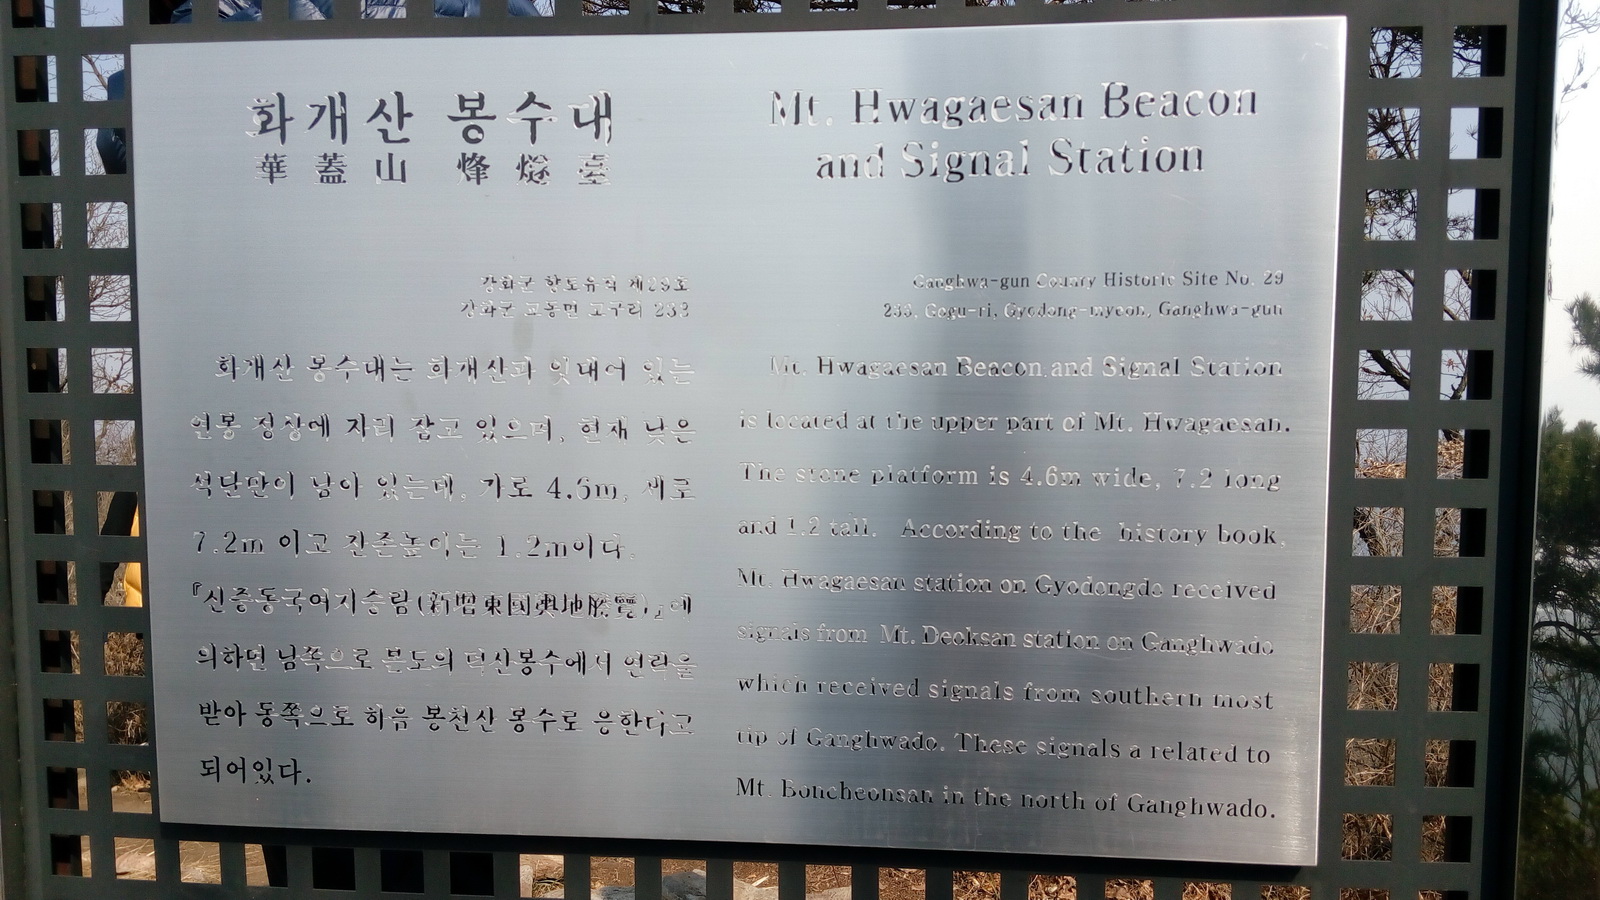 화개산 봉수대
華蓋山 烽燧臺
강화군 향토유적 제29호
강화군 교동면 고구리 233
화개산 봉수대는 화개산과 잇대어 있는
연봉 정상에 자리 잡고 있으며, 현재 낮은
석단만이 남아 있는데, 가로 4.6m, 세로
7.2m 이고 잔존높이는 1.2m이다.
『신증동국여지승람(新增東國輿地勝覽)』에
의하면 남쪽으로 본도의 덕산봉수에서 연락을
받아 동쪽으로 하음 봉천산 봉수로 응한다고
되어있다.
Mt. Hwagaesan Beacon
and Signal Station
Ganghwa-gun County Historic Site No. 29
233, Gogu-ri, Gyodong-myeon, Ganghwa-gun
Mt. Hwagaesan Beacon and Signal Station
is located at the upper part of Mt. Hwagaesan.
The stone platform is 4.6m wide, 7.2 long
and 1.2 tall. According to the history book,
Mt. Hwagaesan station on Gyodongdo received
signals from Mt. Deoksan station on Ganghwado
which received signals from southern most
tip of Ganghwado. These signals a related to
Mt. Boncheonsan in the north of Ganghwado.